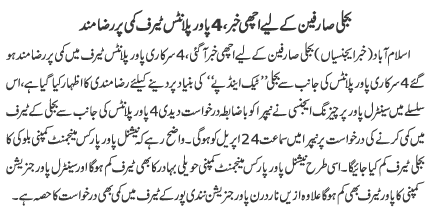 بجلی صارفین کے لیے اچھی خبر، 4 پاور پلانٹس ٹیرف کمی پر رضا مند
اسلام آباد (خبر ایجنسیاں) بجلی صارفین کے لیے اچھی خبر آگئی، 4 سرکاری پاور پلانٹس ٹیرف میں کمی پر رضا مند ہو
گئے 4 سرکاری پاور پلانٹس کی جانب سے بجلی ’’ٹیک اینڈ پے‘‘ کی بنیاد پر دینے کیلئے رضا مندی کا اظہار کیا گیا ہے، اس
سلسلے میں سینٹرل پاور پرچیزنگ ایجنسی نے نیپرا کو باضابطہ درخواست دیدی 4 پاور پلانٹس کی جانب سے بجلی کے ٹیرف
میں کمی کرنے کی درخواست پر نیپرا میں سماعت 24 اپریل کو ہوگی۔ واضح رہے کہ نیشنل پاور پارکس مینجمنٹ کمپنی بلوکی کا
بجلی ٹیرف کم کیا جائیگا۔ اسی طرح نیشنل پاور پارکس مینجمنٹ کمپنی حویلی بہادر کا بھی ٹیرف کم ہوگا اور سینٹرل پاور جنریشن
کمپنی کا پاور ٹیرف بھی کم ہوگا علاوہ ازیں ناردرن پاور جنریشن نندی پور کے ٹیرف میں کمی بھی درخواست کا حصہ ہے۔